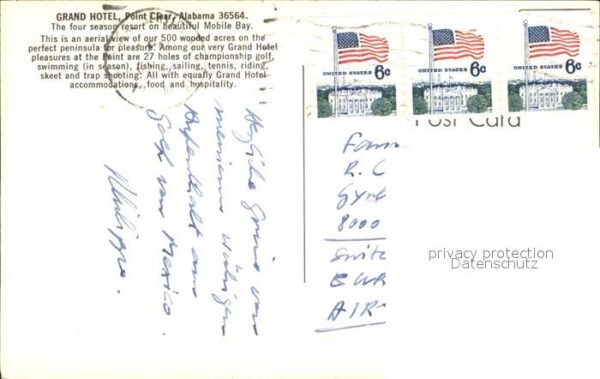 GRAND HOTEL, Point Clear, Alabama 36564.
The four season resort on beautiful Mobile Bay.
This is an aerial view of our 500 wooded acres on the
perfect peninsula for pleasure. Among our very Grand Hotel
pleasures at the Point are 27 holes of championship golf,
swimming (in season), fishing, sailing, tennis, riding,
skeet and trap shooting. All with equally Grand Hotel
accommodations, food and hospitality.
UNITED STATES 6c
UNITED STATES 6c
UNITED STATES 6c
Post Card
Herzliche Grüsse von
meinem
Aufenthalt am
Golf von Mexico.
Philippe.
Fam
R. C
8000
Switz
EUR
AIR
privacy protection
Datenschutz